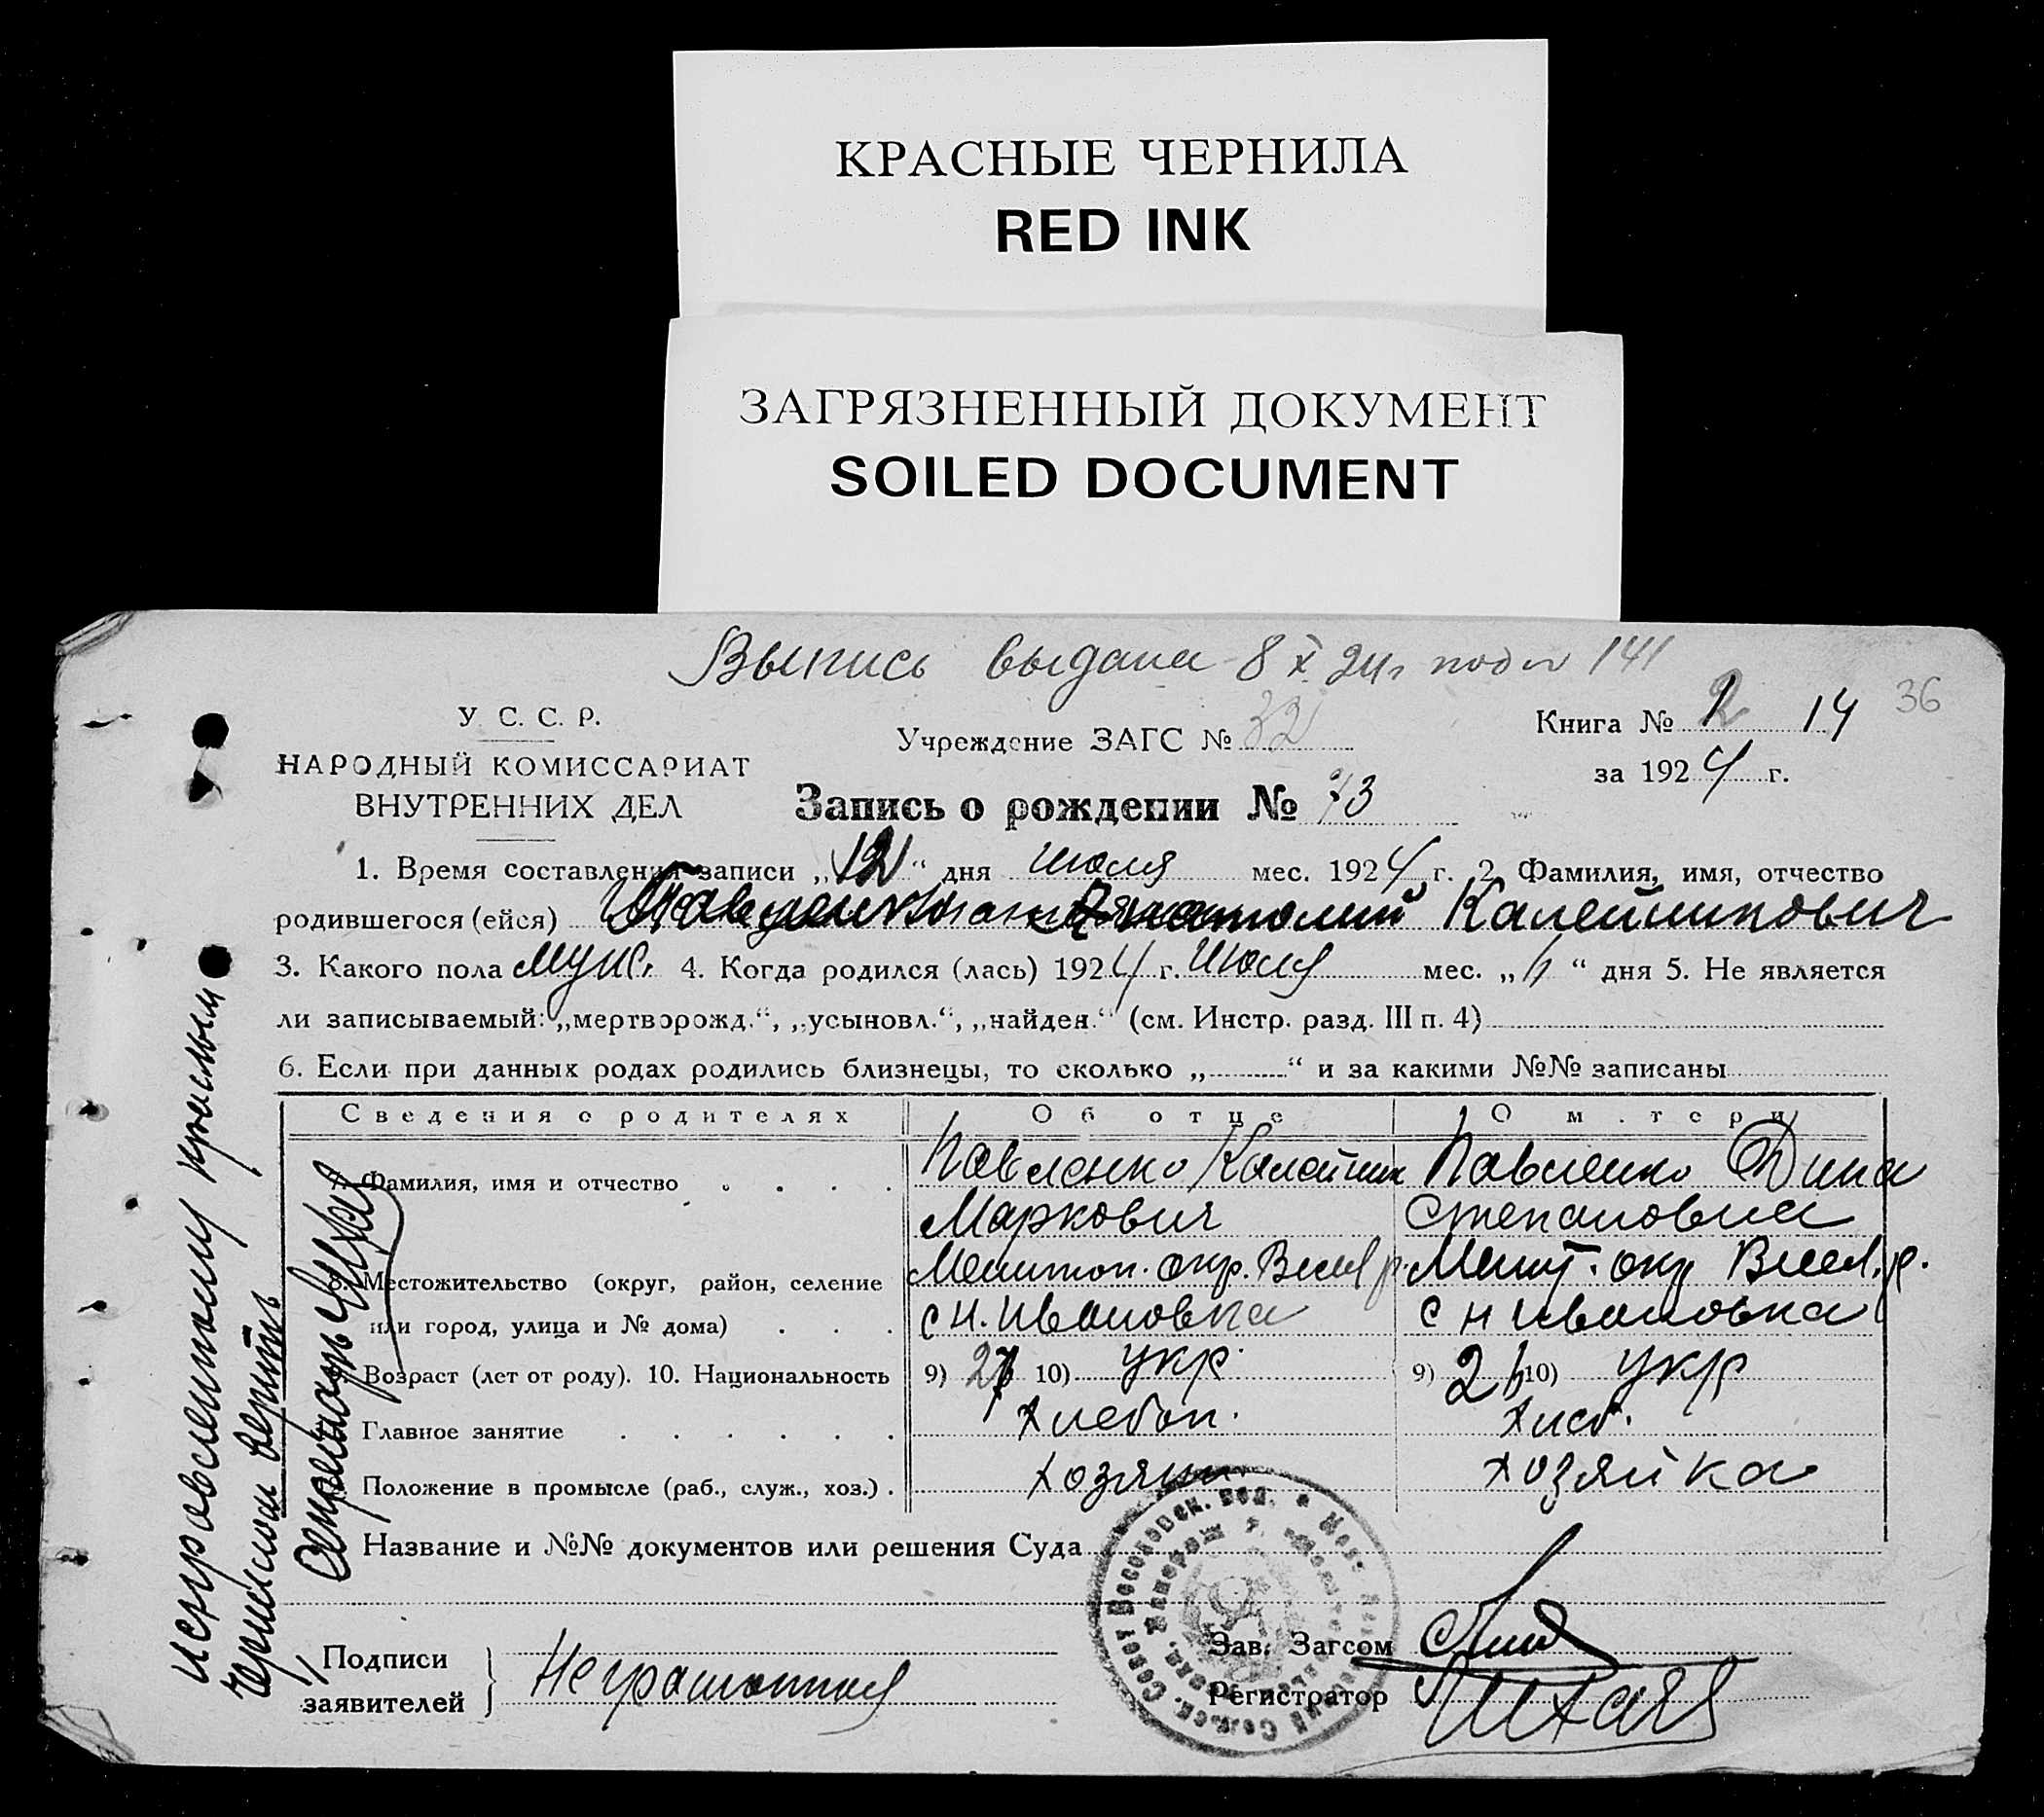 КРАСНЫЕ ЧЕРНИЛА
RED INK
ЗАГРЯЗНЕННЫЙ ДОКУМЕНТ
SOILED DOCUMENT
Выпись выдана 8 X 24 г под № 141
У. С. С. Р.
НАРОДНЫЙ КОМИССАРИАТ
ВНУТРЕННИХ ДЕЛ
Учреждение ЗАГС № 32
Книга № 2 14 36
за 1924 г.
Запись о рождении № 73
1. Время составления записи „12“ дня июля мес. 1924 г. 2. Фамилия, имя, отчество
родившегося (ейся) Анатолий Калейникович
3. Какого пола муж. 4. Когда родился (лась) 1924 г. июля мес. „ “ дня 5. Не является
ли записываемый: „мертворожд.“, „усыновл.“, „найден.“ (см. Инстр. разд. III п. 4)
6. Если при данных родах родились близнецы, то сколько „ “ и за какими №№ записаны
Сведения о родителях Об отце О матери
7. Фамилия, имя и отчество Павленко Калейник Павленко Дина
Маркович Степановна
8. Местожительство (округ, район, селение Мелитоп. окр. Весел р. Мелит. окр Весел. р.
или город, улица и № дома) с Н. Ивановка с Н Ивановка
Возраст (лет от роду). 10. Национальность 9) 27 10) укр. 9) 26 10) укр
Главное занятие хлебоп. хлеб.
Положение в промысле (раб., служ., хоз.) хозяин хозяйка
Название и №№ документов или решения Суда
Подписи
заявителей Неграмотная
Зав. Загсом
Регистратор
исправленному красным
чернилом верить
Секретарь